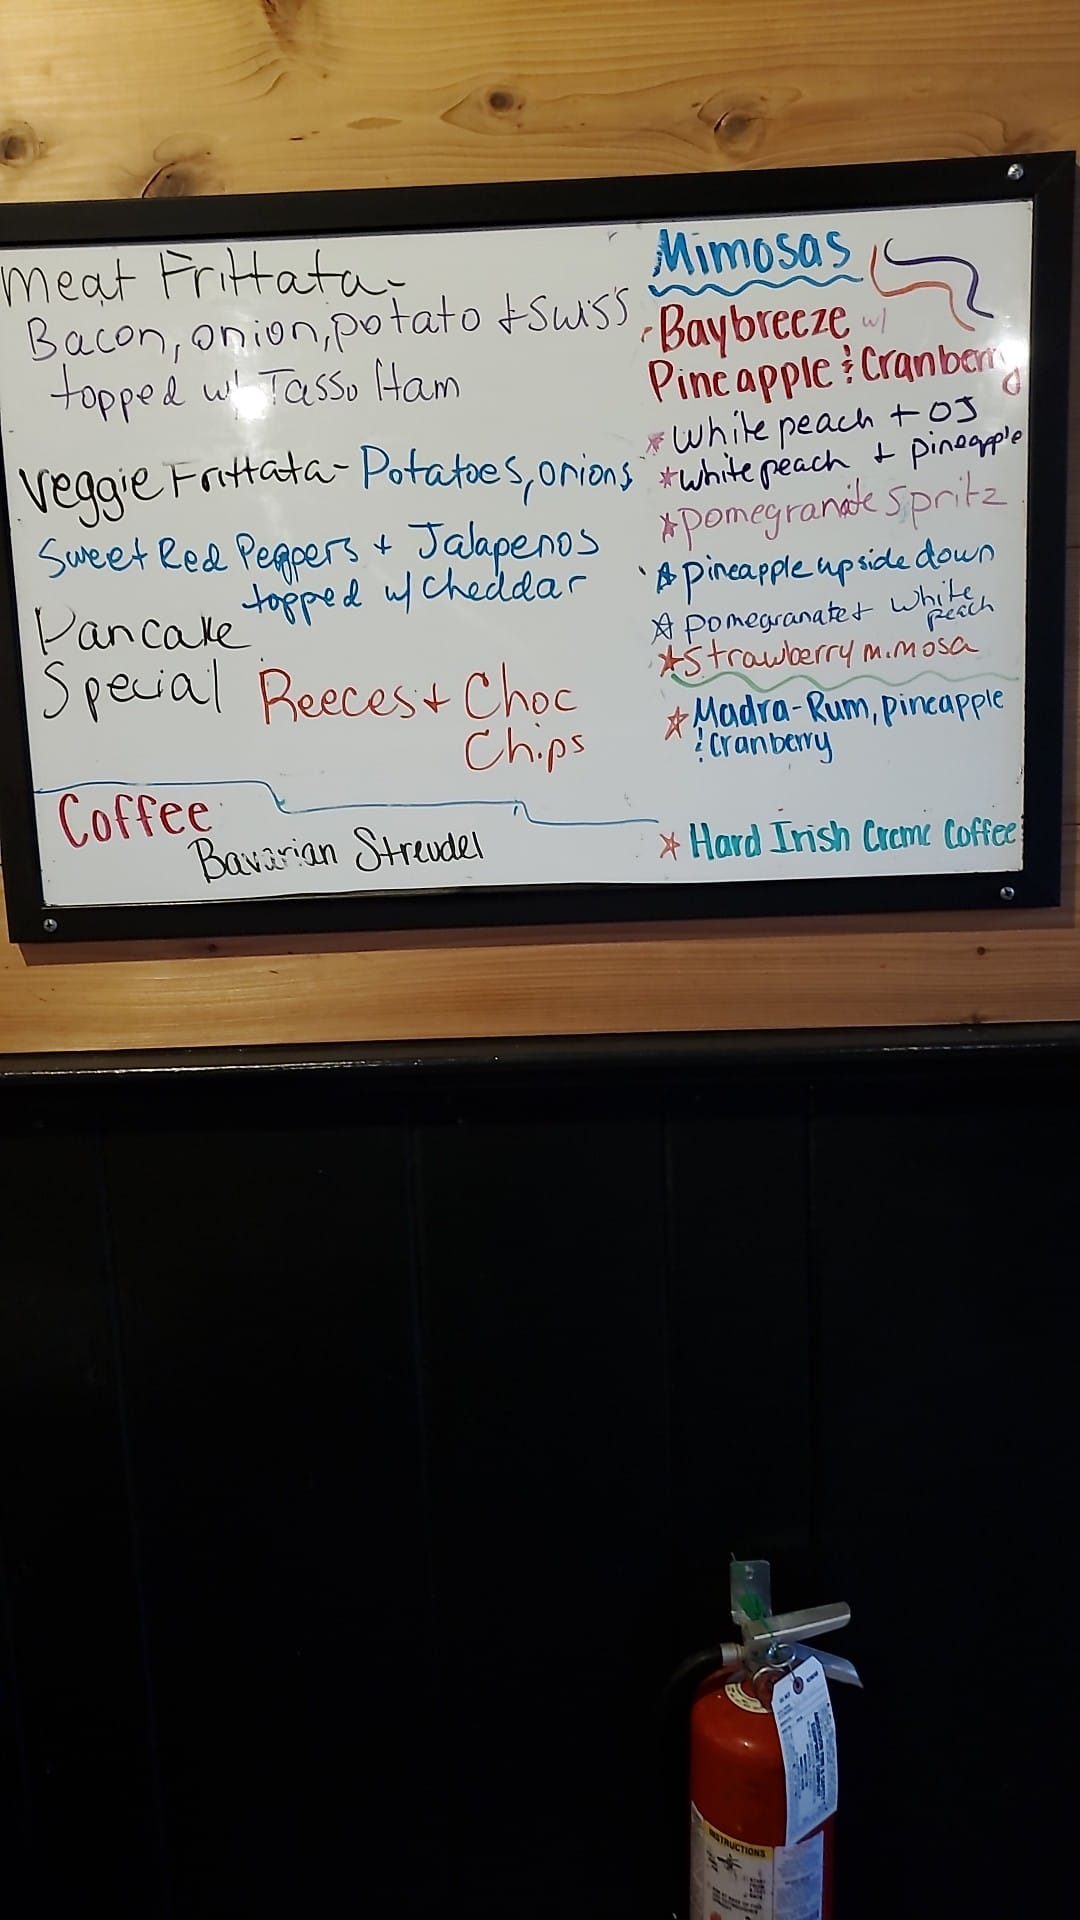 Meat Frittata-
Bacon, onion, potato + Swiss
topped w/ Tasso Ham
Veggie Frittata- Potatoes, onions
Sweet Red Peppers + Jalapenos
topped w/ Cheddar
Pancake
Special Reeces + Choc
Chips
Coffee
Bavarian Streudel
Mimosas
Baybreeze w/
Pineapple & Cranberry
White peach + OJ
White peach + pineapple
Pomegranate Spritz
Pineapple upside down
Pomegranate + White
peach
Strawberry mimosa
Madra-Rum, pineapple
& Cranberry
Hard Irish Creme Coffee
INSTRUCTIONS